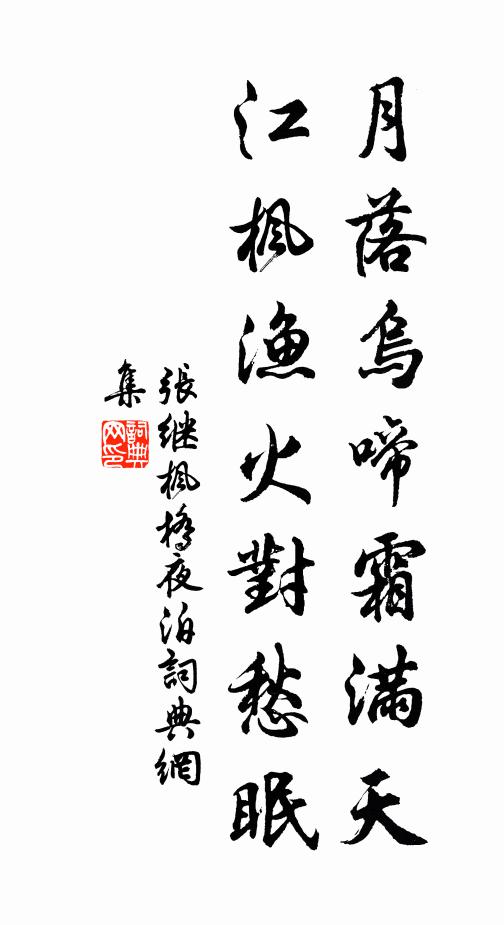 月落烏啼霜滿天
江楓漁火對愁眠
張继楓橋夜泊詞典網
集
詞典
网印